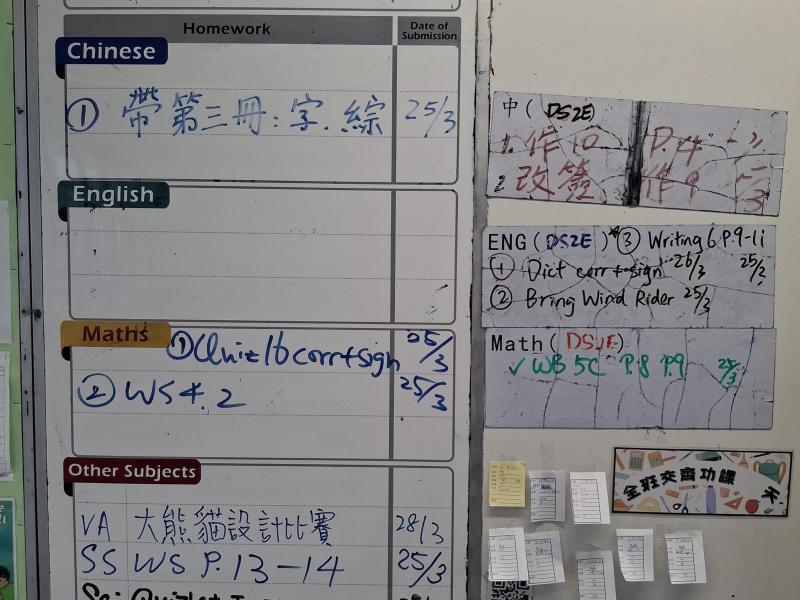 Homework Date of Submission
Chinese
① 帶第三冊:字.綜 25/3
English
Maths
① Quiz 16 corr+sign 25/3
② WS 4.2 25/3
Other Subjects
VA 大熊貓設計比賽 28/3
SS WS P.13-14 25/3
中( DS2E)
1. 作10 P.4
2. 改簽 作9
ENG(DS2E)*③ Writing 6 P.9-11 25/3
① Dict corr+sign 26/3
② Bring Wind Rider 25/3
Math(DS2E)
✓ WB 5C P.8 P.9 25/3
全班交齊功課 天